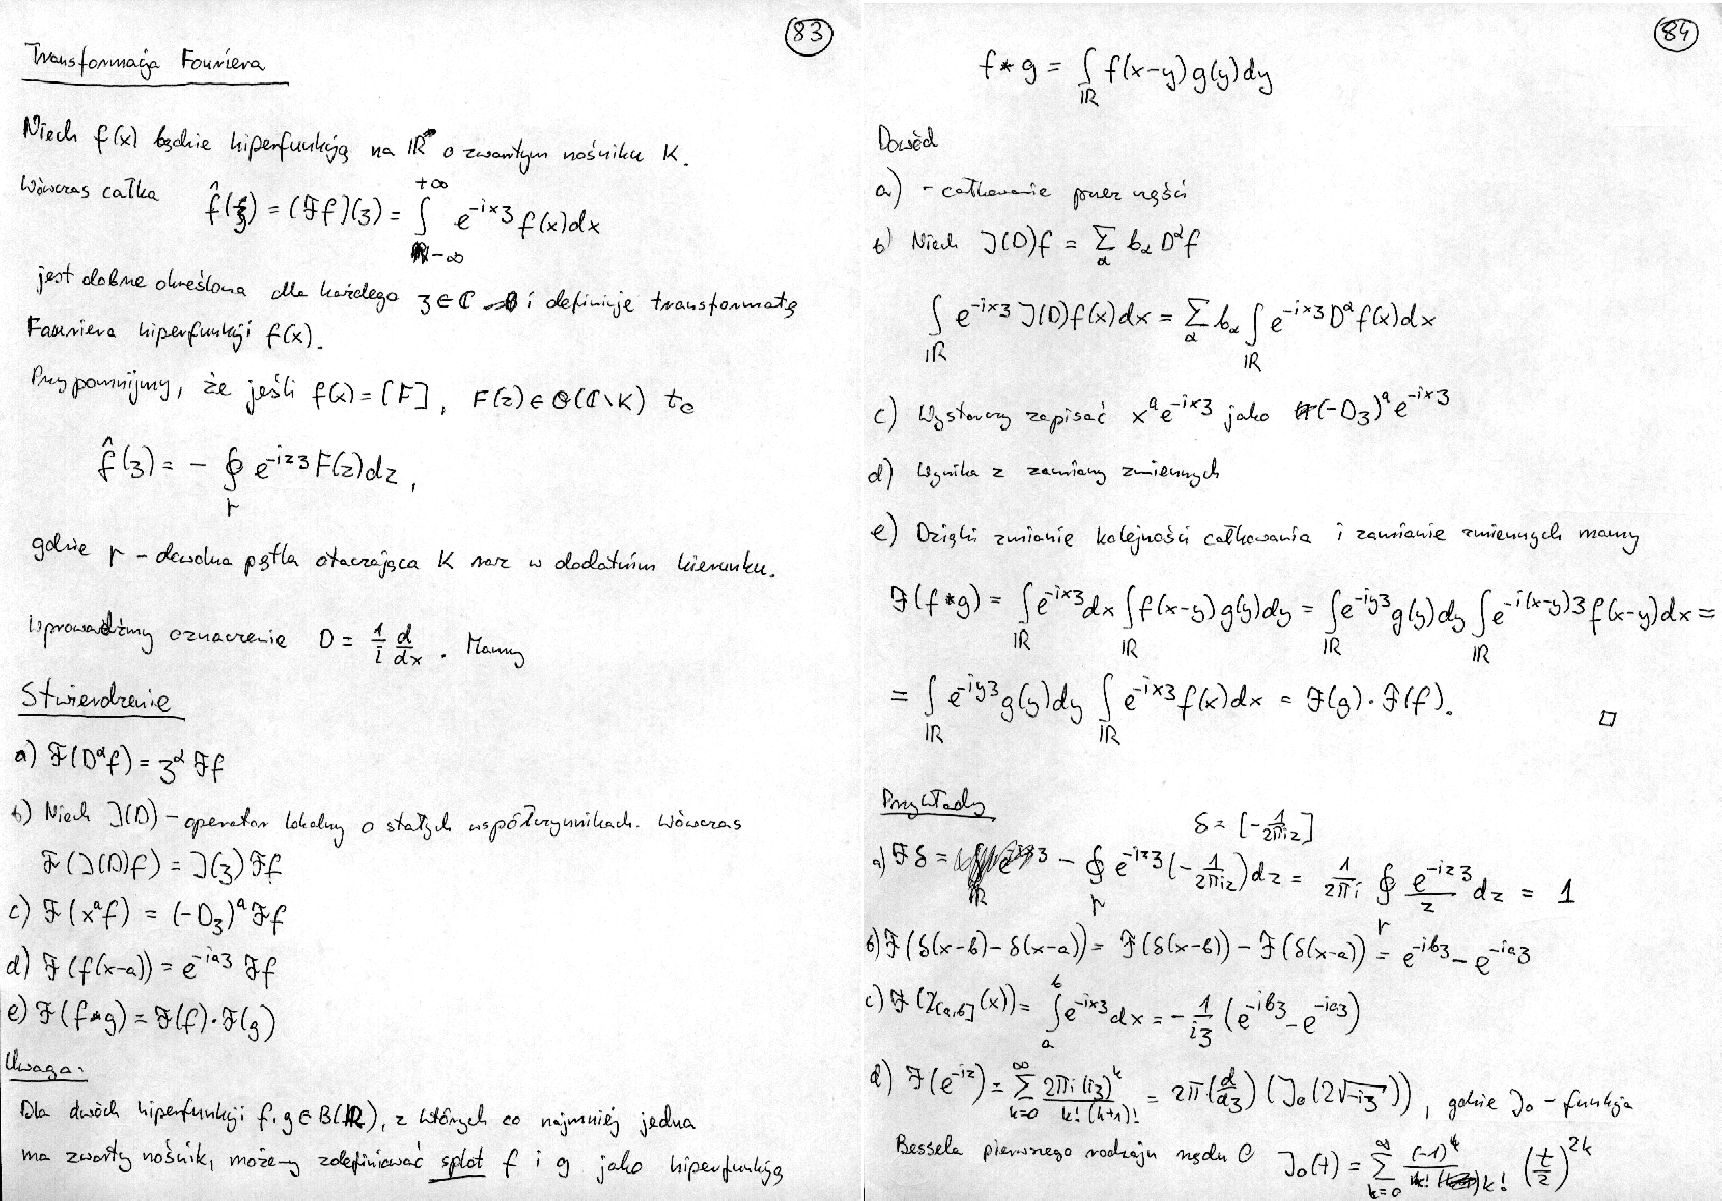 83
Transformacja Fouriera
Niech f(x) będzie hiperfunkcją na ℝ o zwartym nośniku K.
Wówczas całka f̂(ζ) = (ℱf)(ζ) = ∫_{-∞}^{+∞} e^{-ixζ} f(x)dx
jest dobrze określona dla każdego ζ∈ℂ i definiuje transformatę
Fouriera hiperfunkcji f(x).
Przypomnijmy, że jeśli f(x) = [F], F(z)∈𝒪(ℂ\K) to
f̂(ζ) = - ∮_γ e^{-izζ} F(z)dz,
gdzie γ - dowolna pętla otaczająca K raz w dodatnim kierunku.
Wprowadźmy oznaczenie D = 1/i d/dx. Mamy
Stwierdzenie
a) ℱ(D^α f) = ζ^α ℱf
b) Niech J(D) - operator lokalny o stałych współczynnikach. Wówczas
ℱ(J(D)f) = J(ζ) ℱf
c) ℱ(x^a f) = (-D_ζ)^a ℱf
d) ℱ(f(x-a)) = e^{-iaζ} ℱf
e) ℱ(f*g) = ℱ(f)·ℱ(g)
Uwaga.
Dla dwóch hiperfunkcji f, g ∈ B(ℝ), z których co najmniej jedna
ma zwarty nośnik, możemy zdefiniować splot f i g jako hiperfunkcję
84
f*g = ∫_ℝ f(x-y)g(y)dy
Dowód
a) - całkowanie przez części
b) Niech J(D)f = Σ_α b_α D^α f
∫_ℝ e^{-ixζ} J(D)f(x)dx = Σ_α b_α ∫_ℝ e^{-ixζ} D^α f(x)dx
c) Wystarczy zapisać x^a e^{-ixζ} jako (-D_ζ)^a e^{-ixζ}
d) Wynika z zamiany zmiennych
e) Dzięki zmianie kolejności całkowania i zamianie zmiennych mamy
ℱ(f*g) = ∫_ℝ e^{-ixζ}dx ∫_ℝ f(x-y)g(y)dy = ∫_ℝ e^{-iyζ}g(y)dy ∫_ℝ e^{-i(x-y)ζ} f(x-y)dx =
= ∫_ℝ e^{-iyζ}g(y)dy ∫_ℝ e^{-ixζ} f(x)dx = ℱ(g)·ℱ(f). □
Przykłady
δ = [-1/(2πiz)]
a) ℱδ = - ∮_γ e^{-izζ}(-1/(2πiz))dz = 1/(2πi) ∮_γ e^{-izζ}/z dz = 1
b) ℱ(δ(x-b) - δ(x-a)) = ℱ(δ(x-b)) - ℱ(δ(x-a)) = e^{-ibζ} - e^{-iaζ}
c) ℱ(χ_{[a,b]}(x)) = ∫_a^b e^{-ixζ}dx = -1/(iζ) (e^{-ibζ} - e^{-iaζ})
d) ℱ(e^{-iz}) = Σ_{k=0}^∞ 2πi(iζ)^k/(k!(k+1)!) = 2π(d/dζ)(J₀(2√(-iζ))), gdzie J₀ - funkcja
Bessela pierwszego rodzaju rzędu 0 J₀(t) = Σ_{k=0}^∞ (-1)^k/(k! k!) (t/2)^{2k}